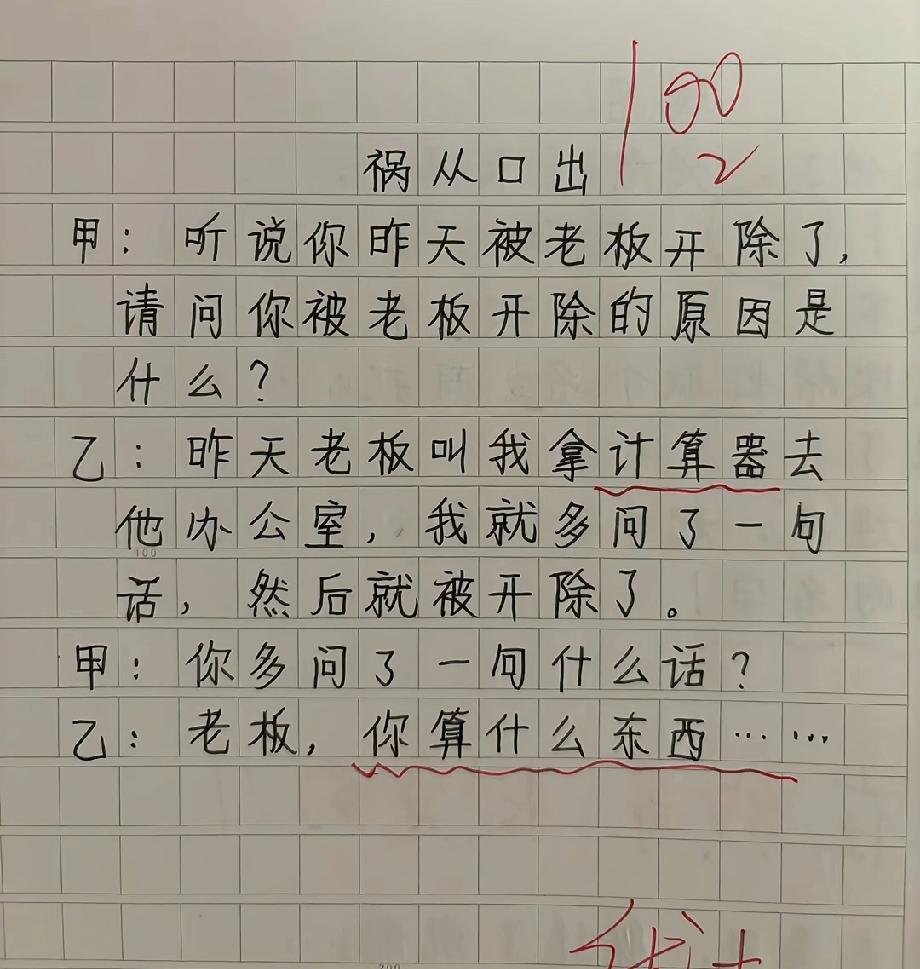 100
2
祸从口出
甲：听说你昨天被老板开除了，
请问你被老板开除的原因是
什么？
乙：昨天老板叫我拿计算器去
他办公室，我就多问了一句
100
话，然后就被开除了。
甲：你多问了一句什么话？
乙：老板，你算什么东西……
200